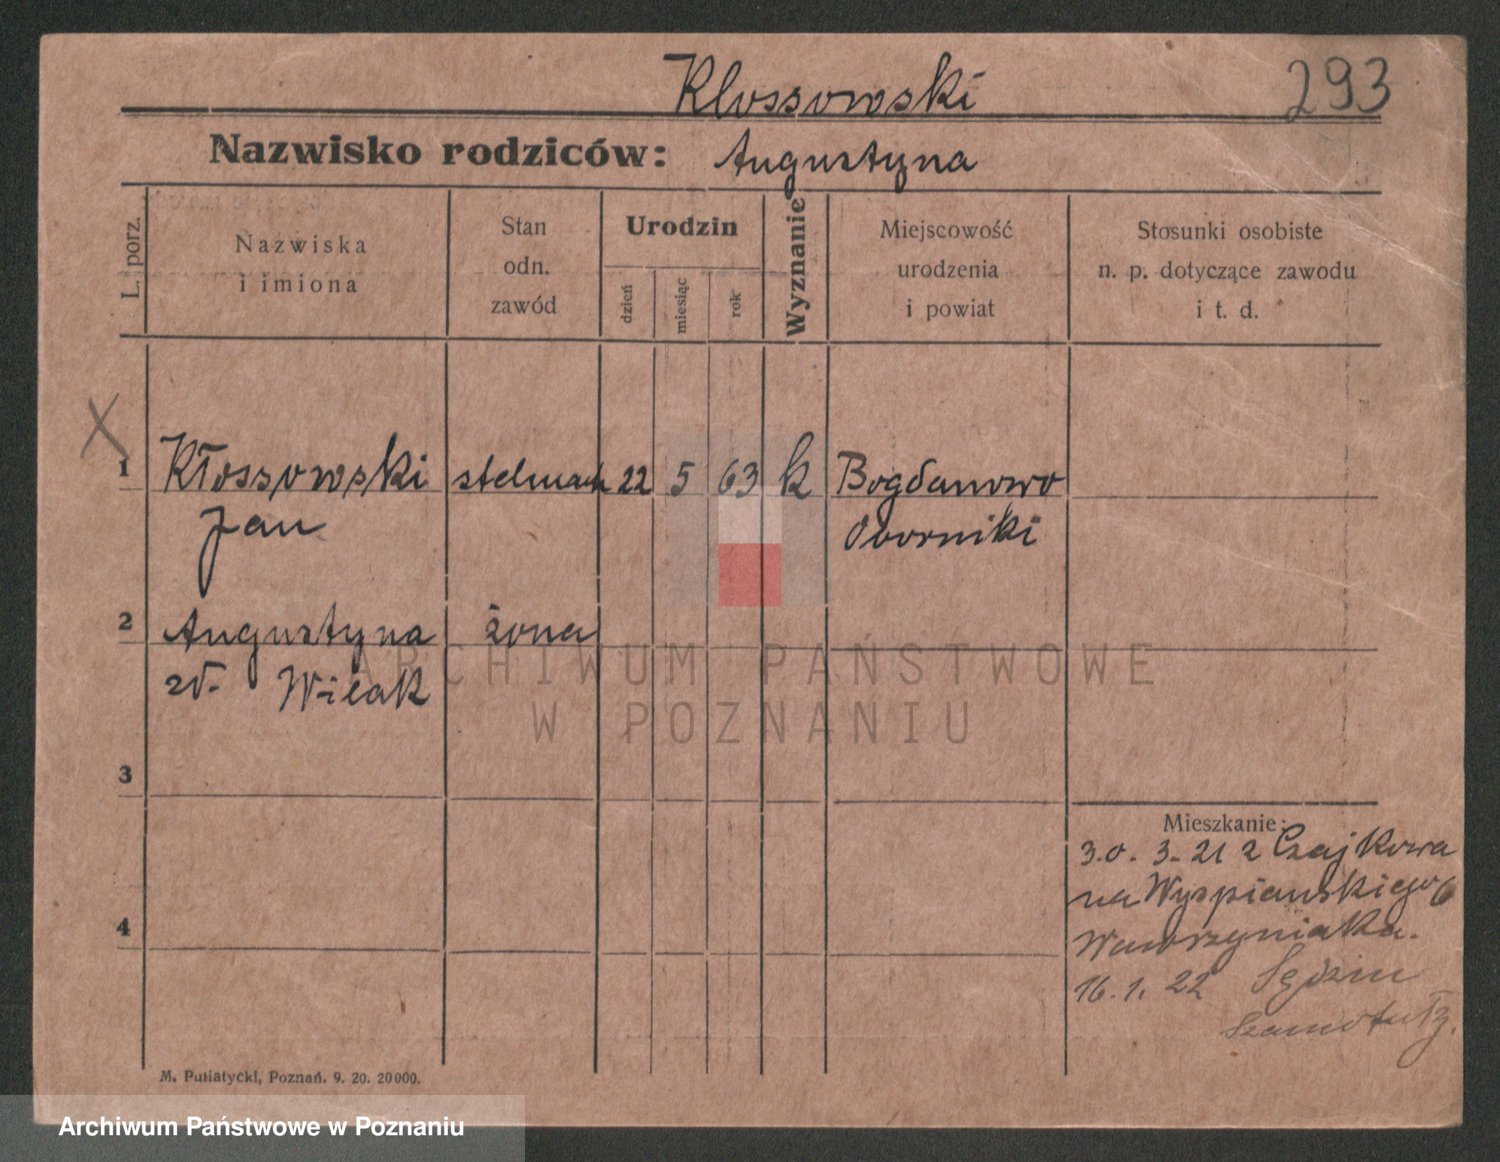 Klossowski
293
Nazwisko rodziców: Augustyna
L. porz.
Nazwiska
i imiona
Stan
odn.
zawód
Urodzin
dzień
miesiąc
rok
Wyznanie
Miejscowość
urodzenia
i powiat
Stosunki osobiste
n. p. dotyczące zawodu
i t. d.
X
1 Kłossowski stelmach 22 5 63 k Bogdanowo
Jan Oborniki
2 Augustyna żona
zd. Wilak
3
4
Mieszkanie:
30. 3. 21 z Czajkowa
na Wyspianskiego 6
Wawrzyniaka.
16. 1. 22 Sędzin
Szamotuły.
M. Putiatycki, Poznań. 9. 20. 20000.
ARCHIWUM PAŃSTWOWE
W POZNANIU
Archiwum Państwowe w Poznaniu